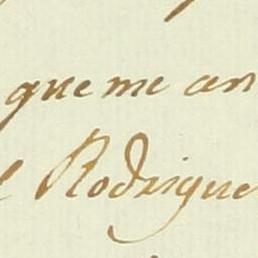 que me an
Rodrigue